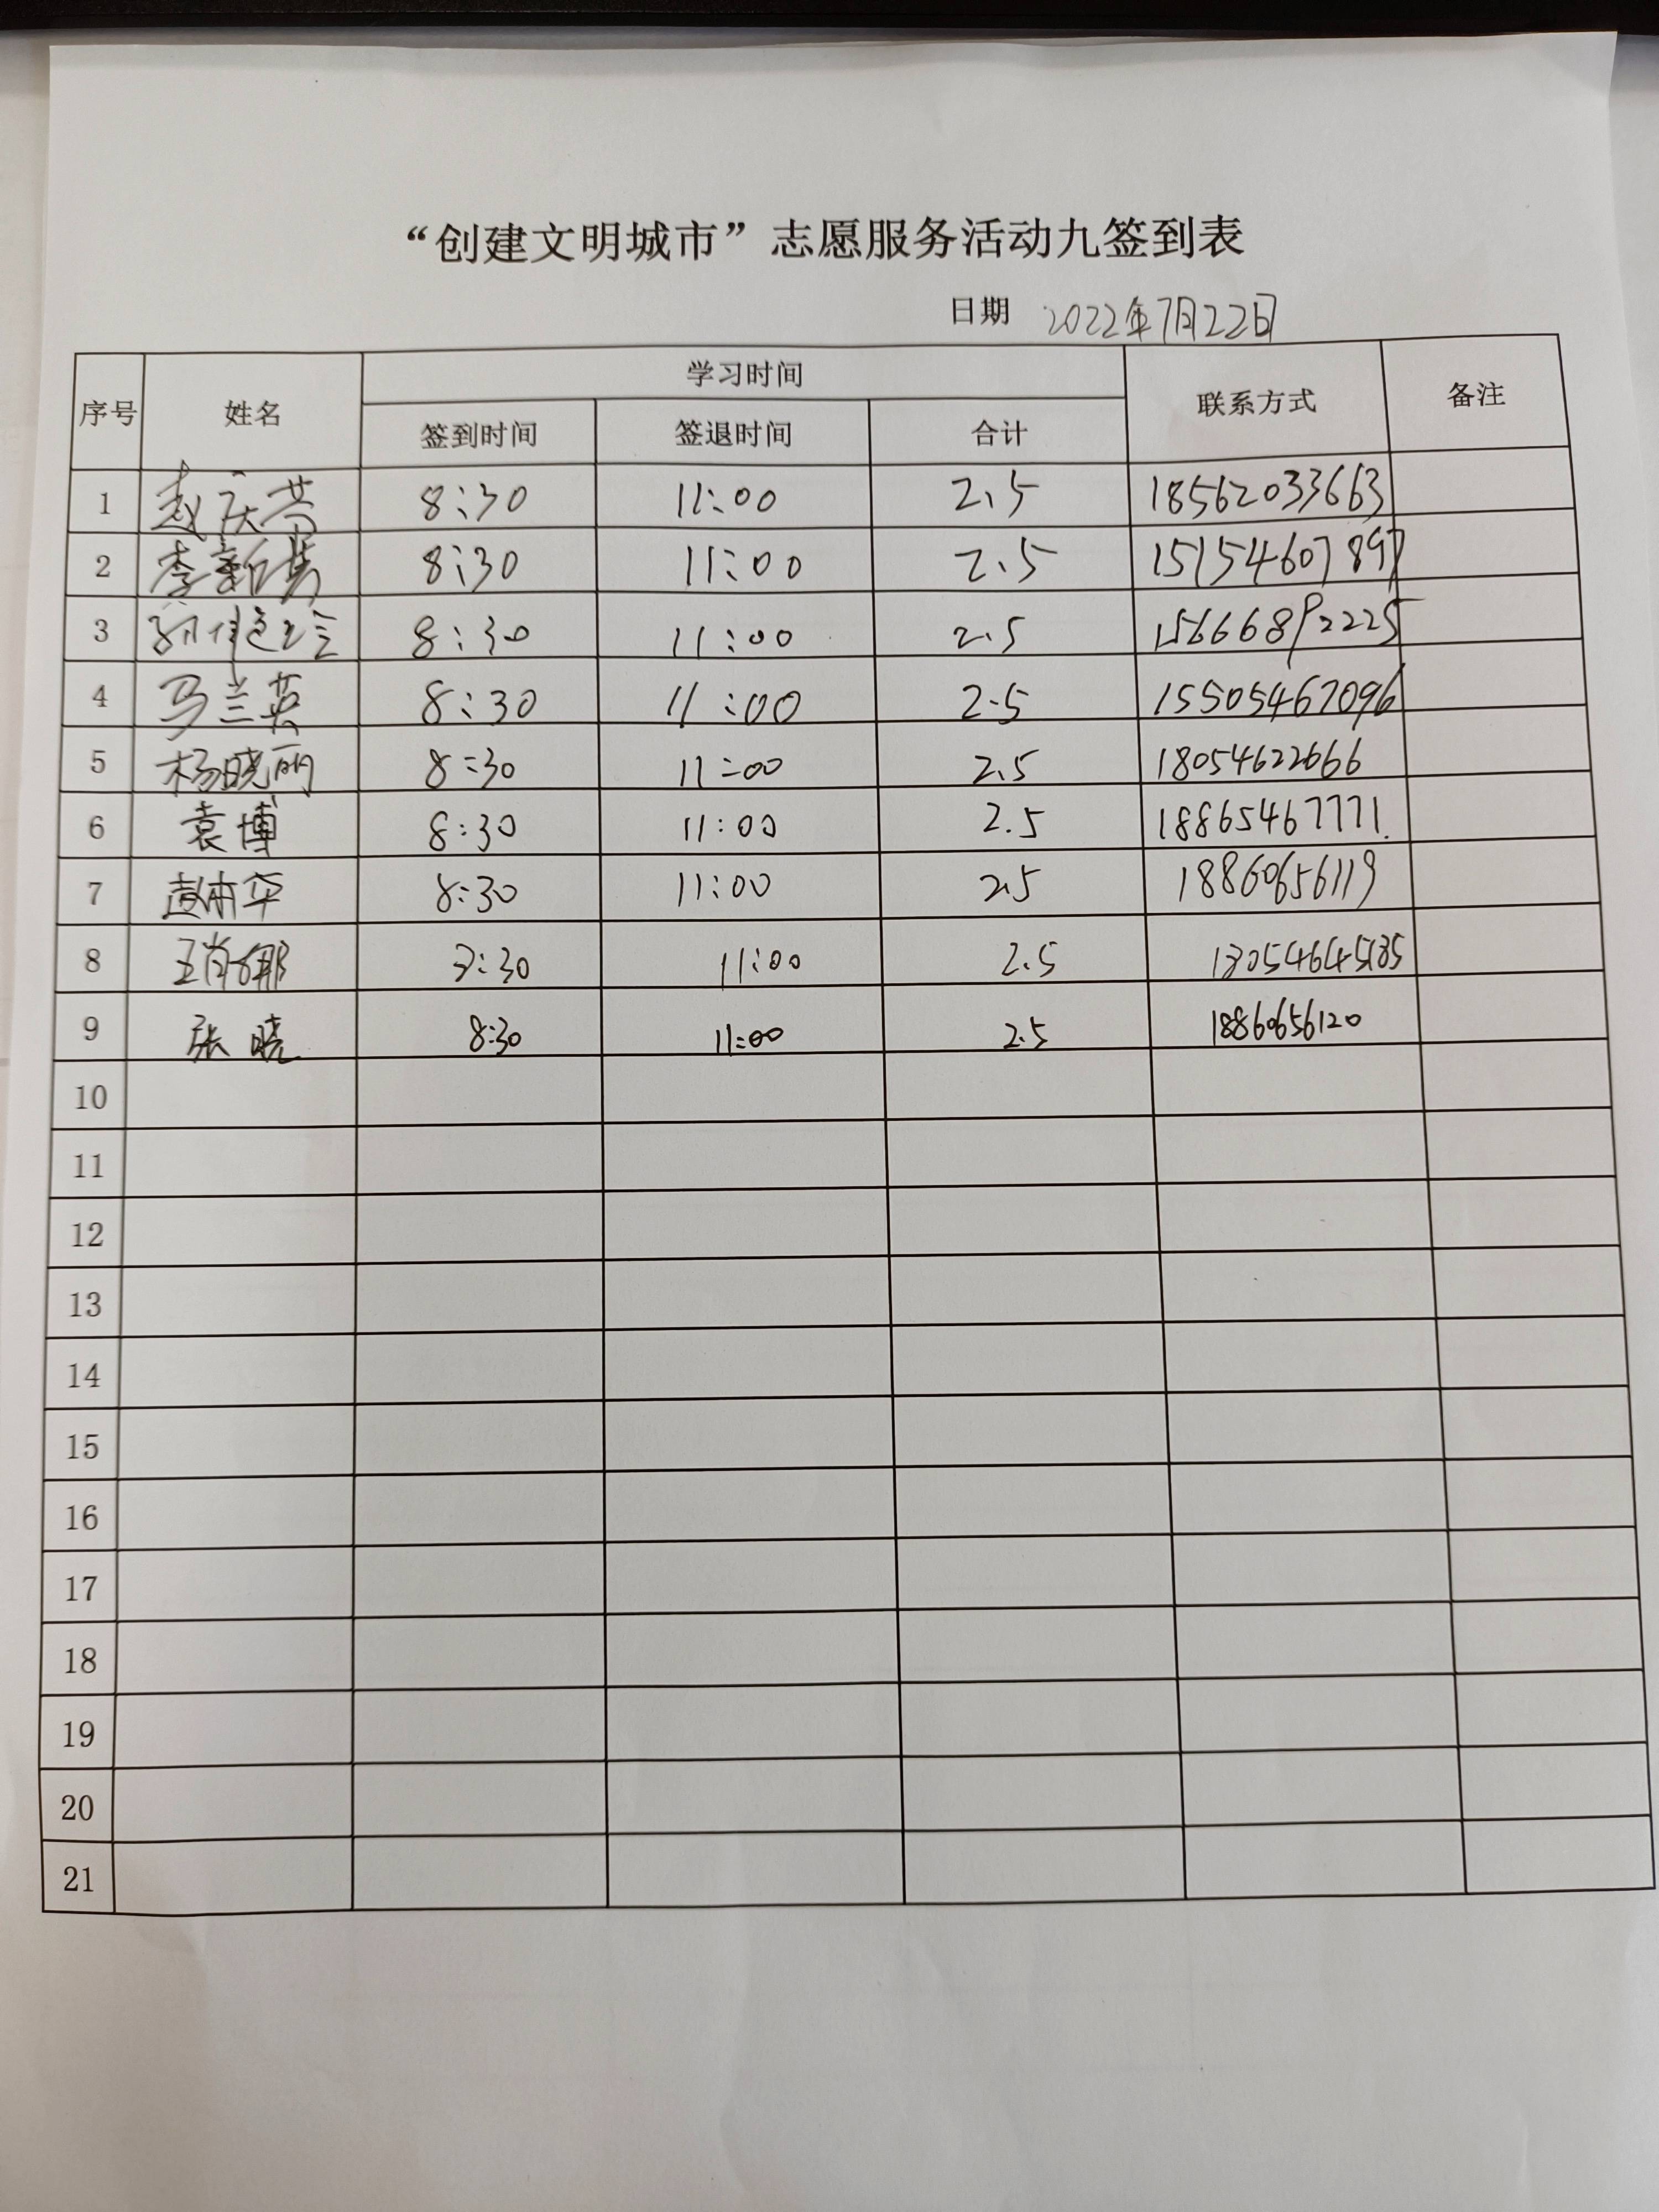 “创建文明城市”志愿服务活动九签到表
日期 2022年7月22日
序号 姓名 学习时间 联系方式 备注
签到时间 签退时间 合计
1 赵庆芸 8:30 11:00 2.5 18562033663
2 李新 8:30 11:00 2.5 15154607897
3 8:30 11:00 2.5 15666892225
4 马兰英 8:30 11:00 2.5 15505467096
5 杨晓丽 8:30 11:00 2.5 18054622666
6 袁博 8:30 11:00 2.5 18865467771
7 赵 华 8:30 11:00 2.5 18860656119
8 王肖娜 8:30 11:00 2.5
9 张晓 8:30 11:00 2.5 18860656120
10
11
12
13
14
15
16
17
18
19
20
21